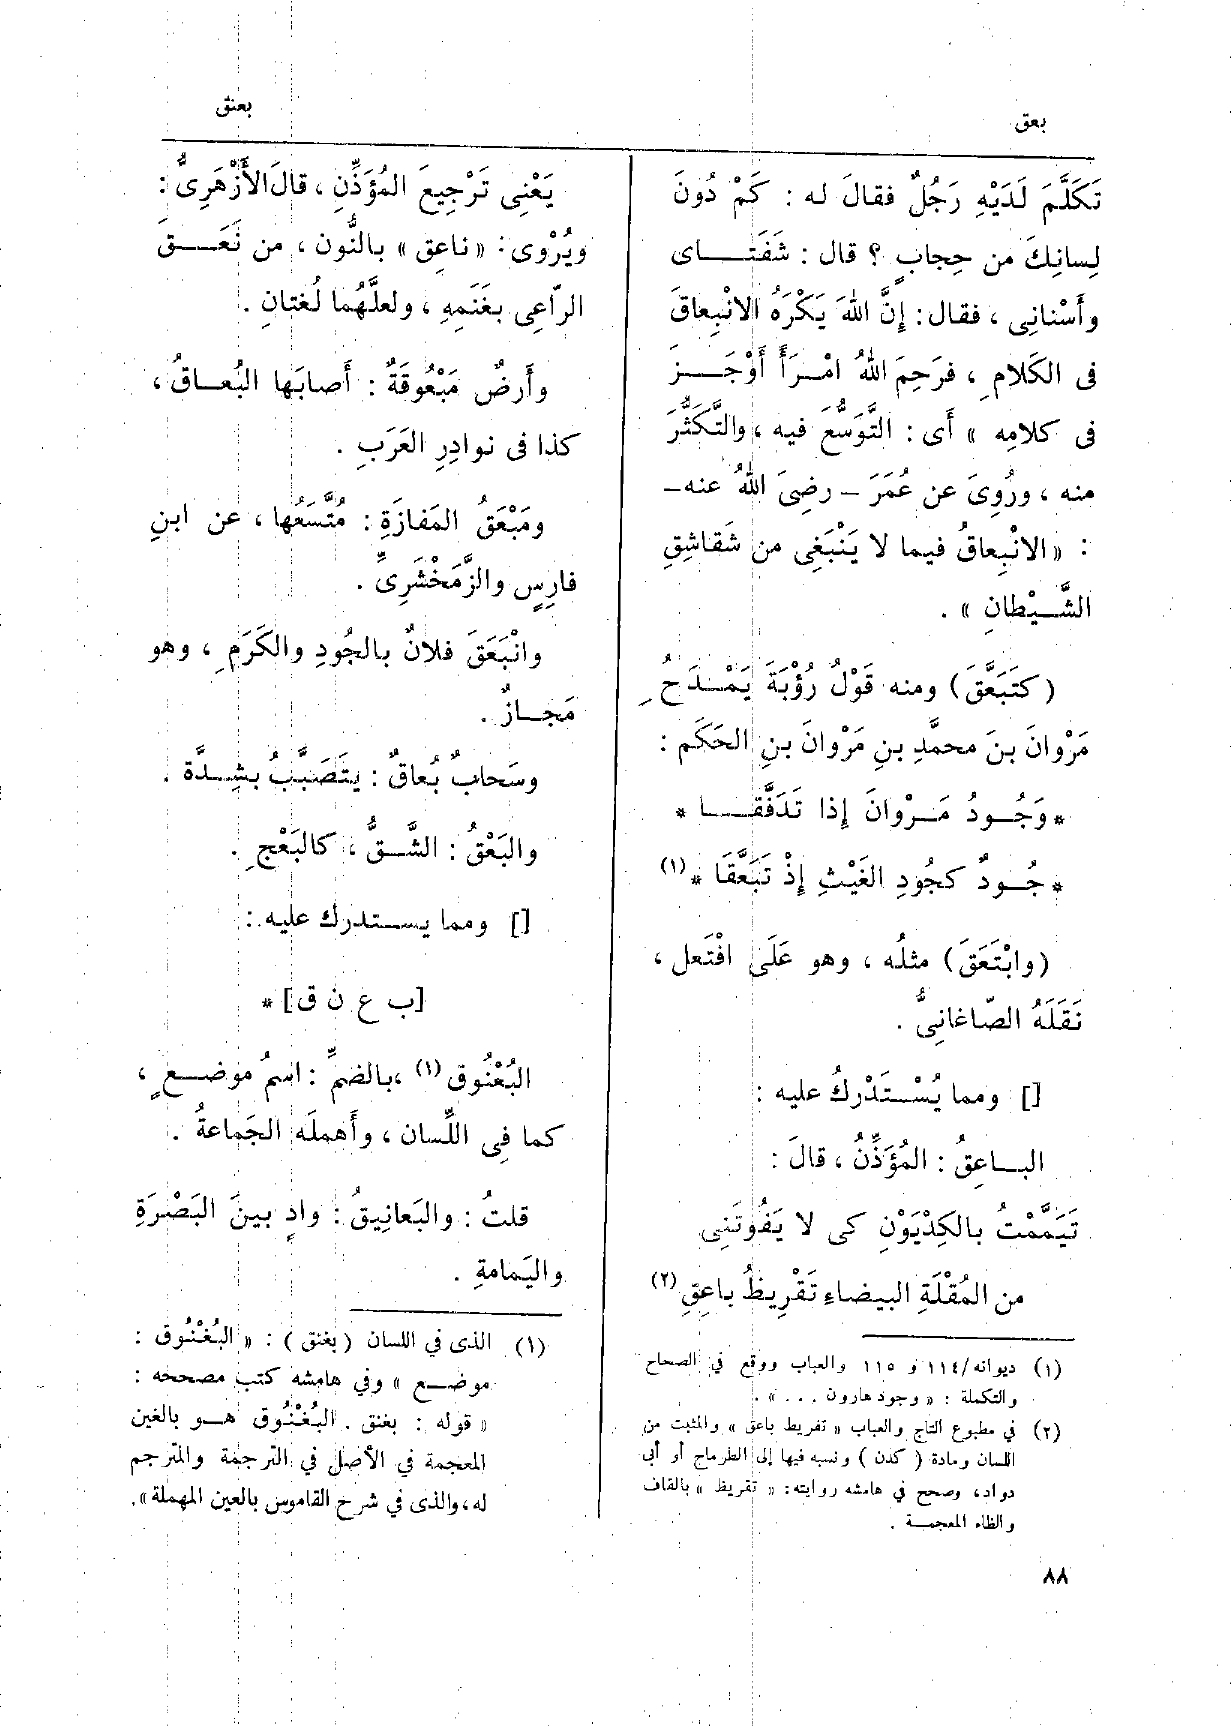 بعق
بعنق
تَكَلَّمَ لَدَيْهِ رَجُلٌ فقالَ له : كَمْ دُونَ
لِسانِكَ من حِجابٍ ؟ قال : شَفَتَـــاى
وأَسْنانِى ، فقال: إِنَّ اللهَ يَكْرَهُ الانْبِعاقَ
فى الكَلامِ ، فرَحِمَ اللهُ امْـرَأً أَوْجَـــزَ
فى كلامِه » أى : التَّوَسُّعَ فيه ، والتَّكَثُّرَ
منه ، ورُوِىَ عن عُمَرَ – رضِىَ اللهُ عنه–
: «الانْبِعاقُ فيما لا يَنْبَغِى من شَقاشِقِ
الشَّـيْطانِ » .
( كتَبَعَّقَ ) ومنه قَوْلُ رُؤْبَةَ يَمْـدَحُ
مَرْوانَ بنَ محمَّدِ بنِ مَرْوانَ بنِ الحَكَم :
*وَجُـودُ مَـرْوانَ إِذا تَدَفَّقَـــا *
* جُـودٌ كجُودِ الغَيْثِ إِذْ تَبَعَّقَا *(١)
(وابْتَعَقَ) مثلُه ، وهو عَلَى افْتَعل ،
نَقَلَهُ الصّاغانِىُّ .
[] ومما يُسْـتَدْرَكُ عليه :
البــاعِقُ : المُؤَذِّنُ ، قالَ :
تَيَمَّمْتُ بالكِدْيَوْنِ كى لا يَفُوتَنِى
من المُقْلَةِ البيضاءِ تَقْرِيظُ باعِقِ (٢)
(١) ديوانه/١١٤ و ١١٥ والعباب ووقع في الصحاح
والتكملة : « وجود هارون . . . » .
(٢) في مطبوع التاج والعباب « تفريط باعق » والمثبت من
اللسان ومادة ( كدن ) ونسبه فيها إلى الطرماح أو أبى
دواد، وصحح في هامشه روايته: « تقريظ » بالقاف
والظاء المعجمــة .
يَعْنِى تَرْجِيعَ المُؤَذِّنِ ، قالَ الأَزْهَرِىُّ :
ويُرْوى: «ناعِق» بالنُّون ، من نَعَـــقَ
الرّاعِى بغَنَمِهِ ، ولعلَّهُما لُغتانِ .
وأَرضٌ مَبْعُوقَةٌ : أَصابَها البُعــاقُ ،
كذا فى نوادِرِ العَرَبِ .
ومَبْعَقُ المَفازَةِ : مُتَّسَعُها ، عن ابنِ
فارِسٍ والزَّمَخْشَرِىِّ .
وانْبَعَقَ فلانٌ بالجُودِ والكَرَمِ ، وهو
مَجـازٌ .
وسَحابٌ بُعاقٌ : يتَصَبَّبُ بشِـدَّة .
والبَعْقُ : الشَّـقُّ ، كالبَعْجِ .
[] ومما يســتدرك عليه :
[ب ع ن ق] *
البُعْنُوق (١) ،بالضمِّ : اسمُ موضـــعٍ ،
كما فِى اللِّسان ، وأَهمله الجَماعةُ .
قلتُ : والبَعانِيقُ : وادٍ بينَ البَصْرَةِ
واليَمامةِ .
(١) الذى في اللسان (بغنق) : « البُغْنُوق :
موضـــع » وفي هامشه كتب مصححه :
« قوله : بغنق . البُغْنُوق هــو بالغين
المعجمة في الأصل في الترجمة والمترجم
له،والذى في شرح القاموس بالعين المهملة».
٨٨